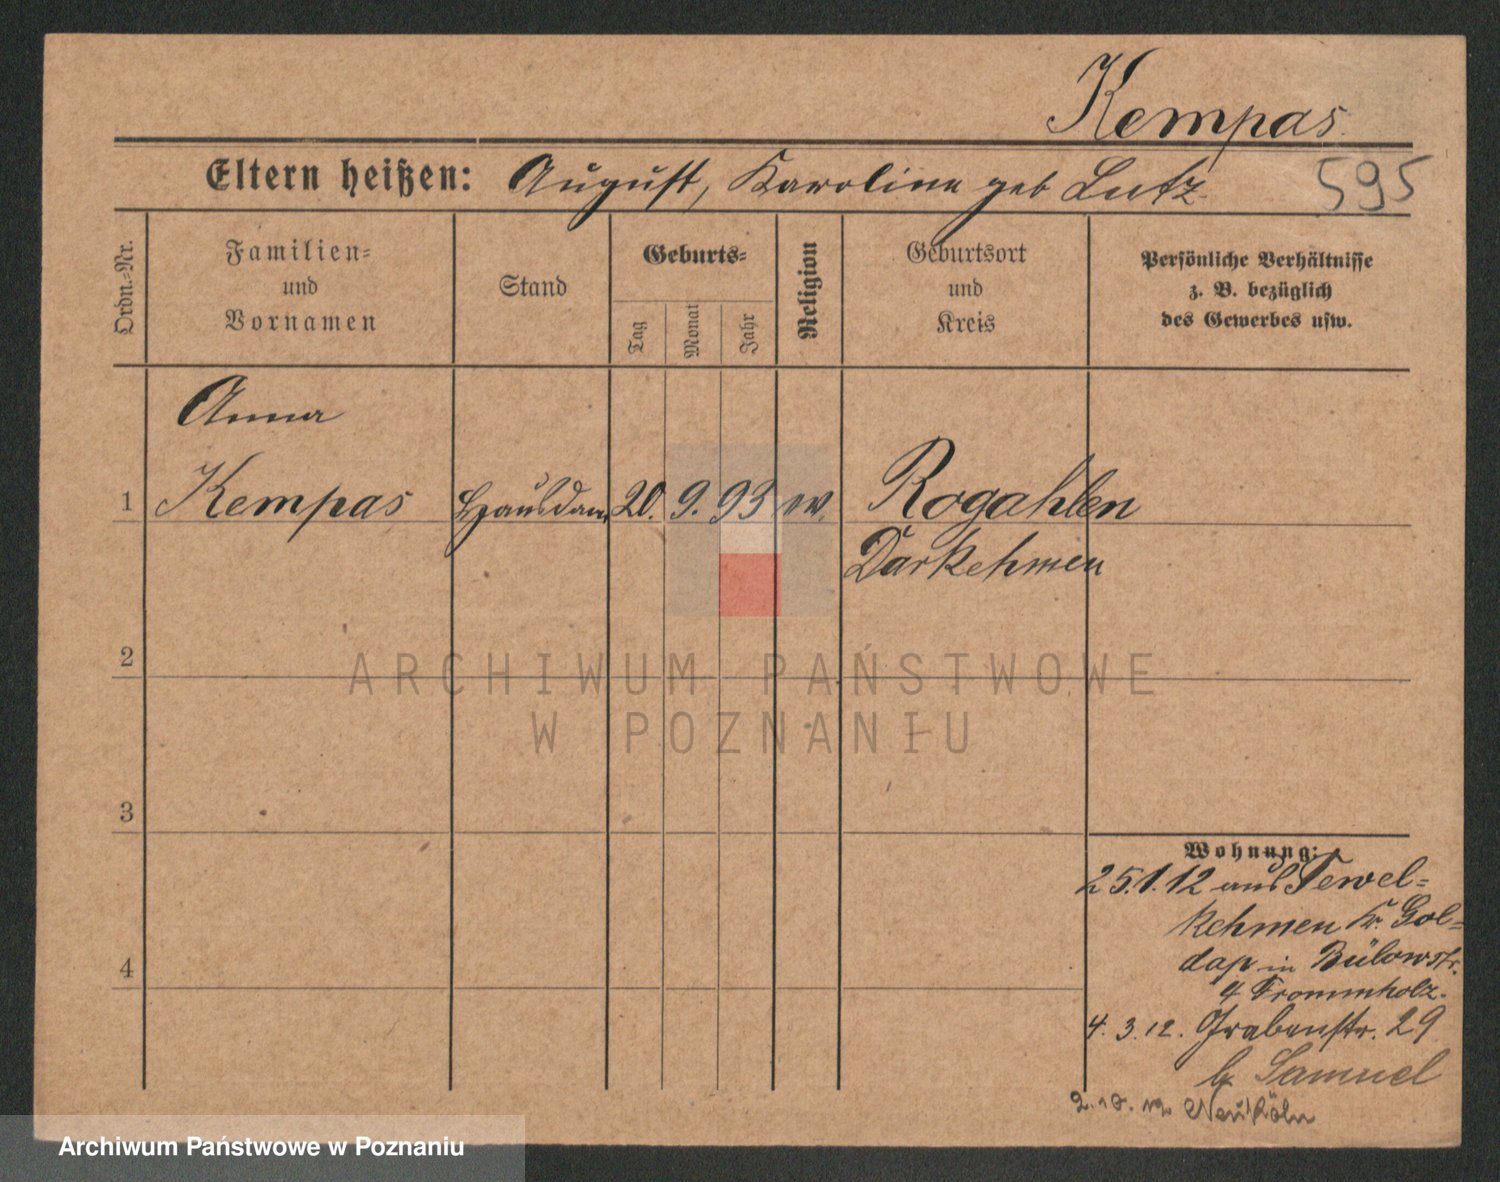 Kempas
Eltern heißen: August, Karoline geb Lutz
595
Ordn.-Nr.
Familien-
und
Vornamen
Stand
Geburts-
Tag
Monat
Jahr
Religion
Geburtsort
und
Kreis
Persönliche Verhältnisse
z. B. bezüglich
des Gewerbes usw.
Anna
1 Kempas Hausdam 20. 9. 93 ev. Rogahlen
Darkehmen
2
3
4
Wohnung:
25.1.12 aus Tewel=
kehmen Kr. Gol=
dap in Bülowstr.
4 Frommholz.
4.3.12. Grabenstr. 29
b. Samuel
2.10.12 Neukölln
ARCHIWUM PAŃSTWOWE
W POZNANIU
Archiwum Państwowe w Poznaniu